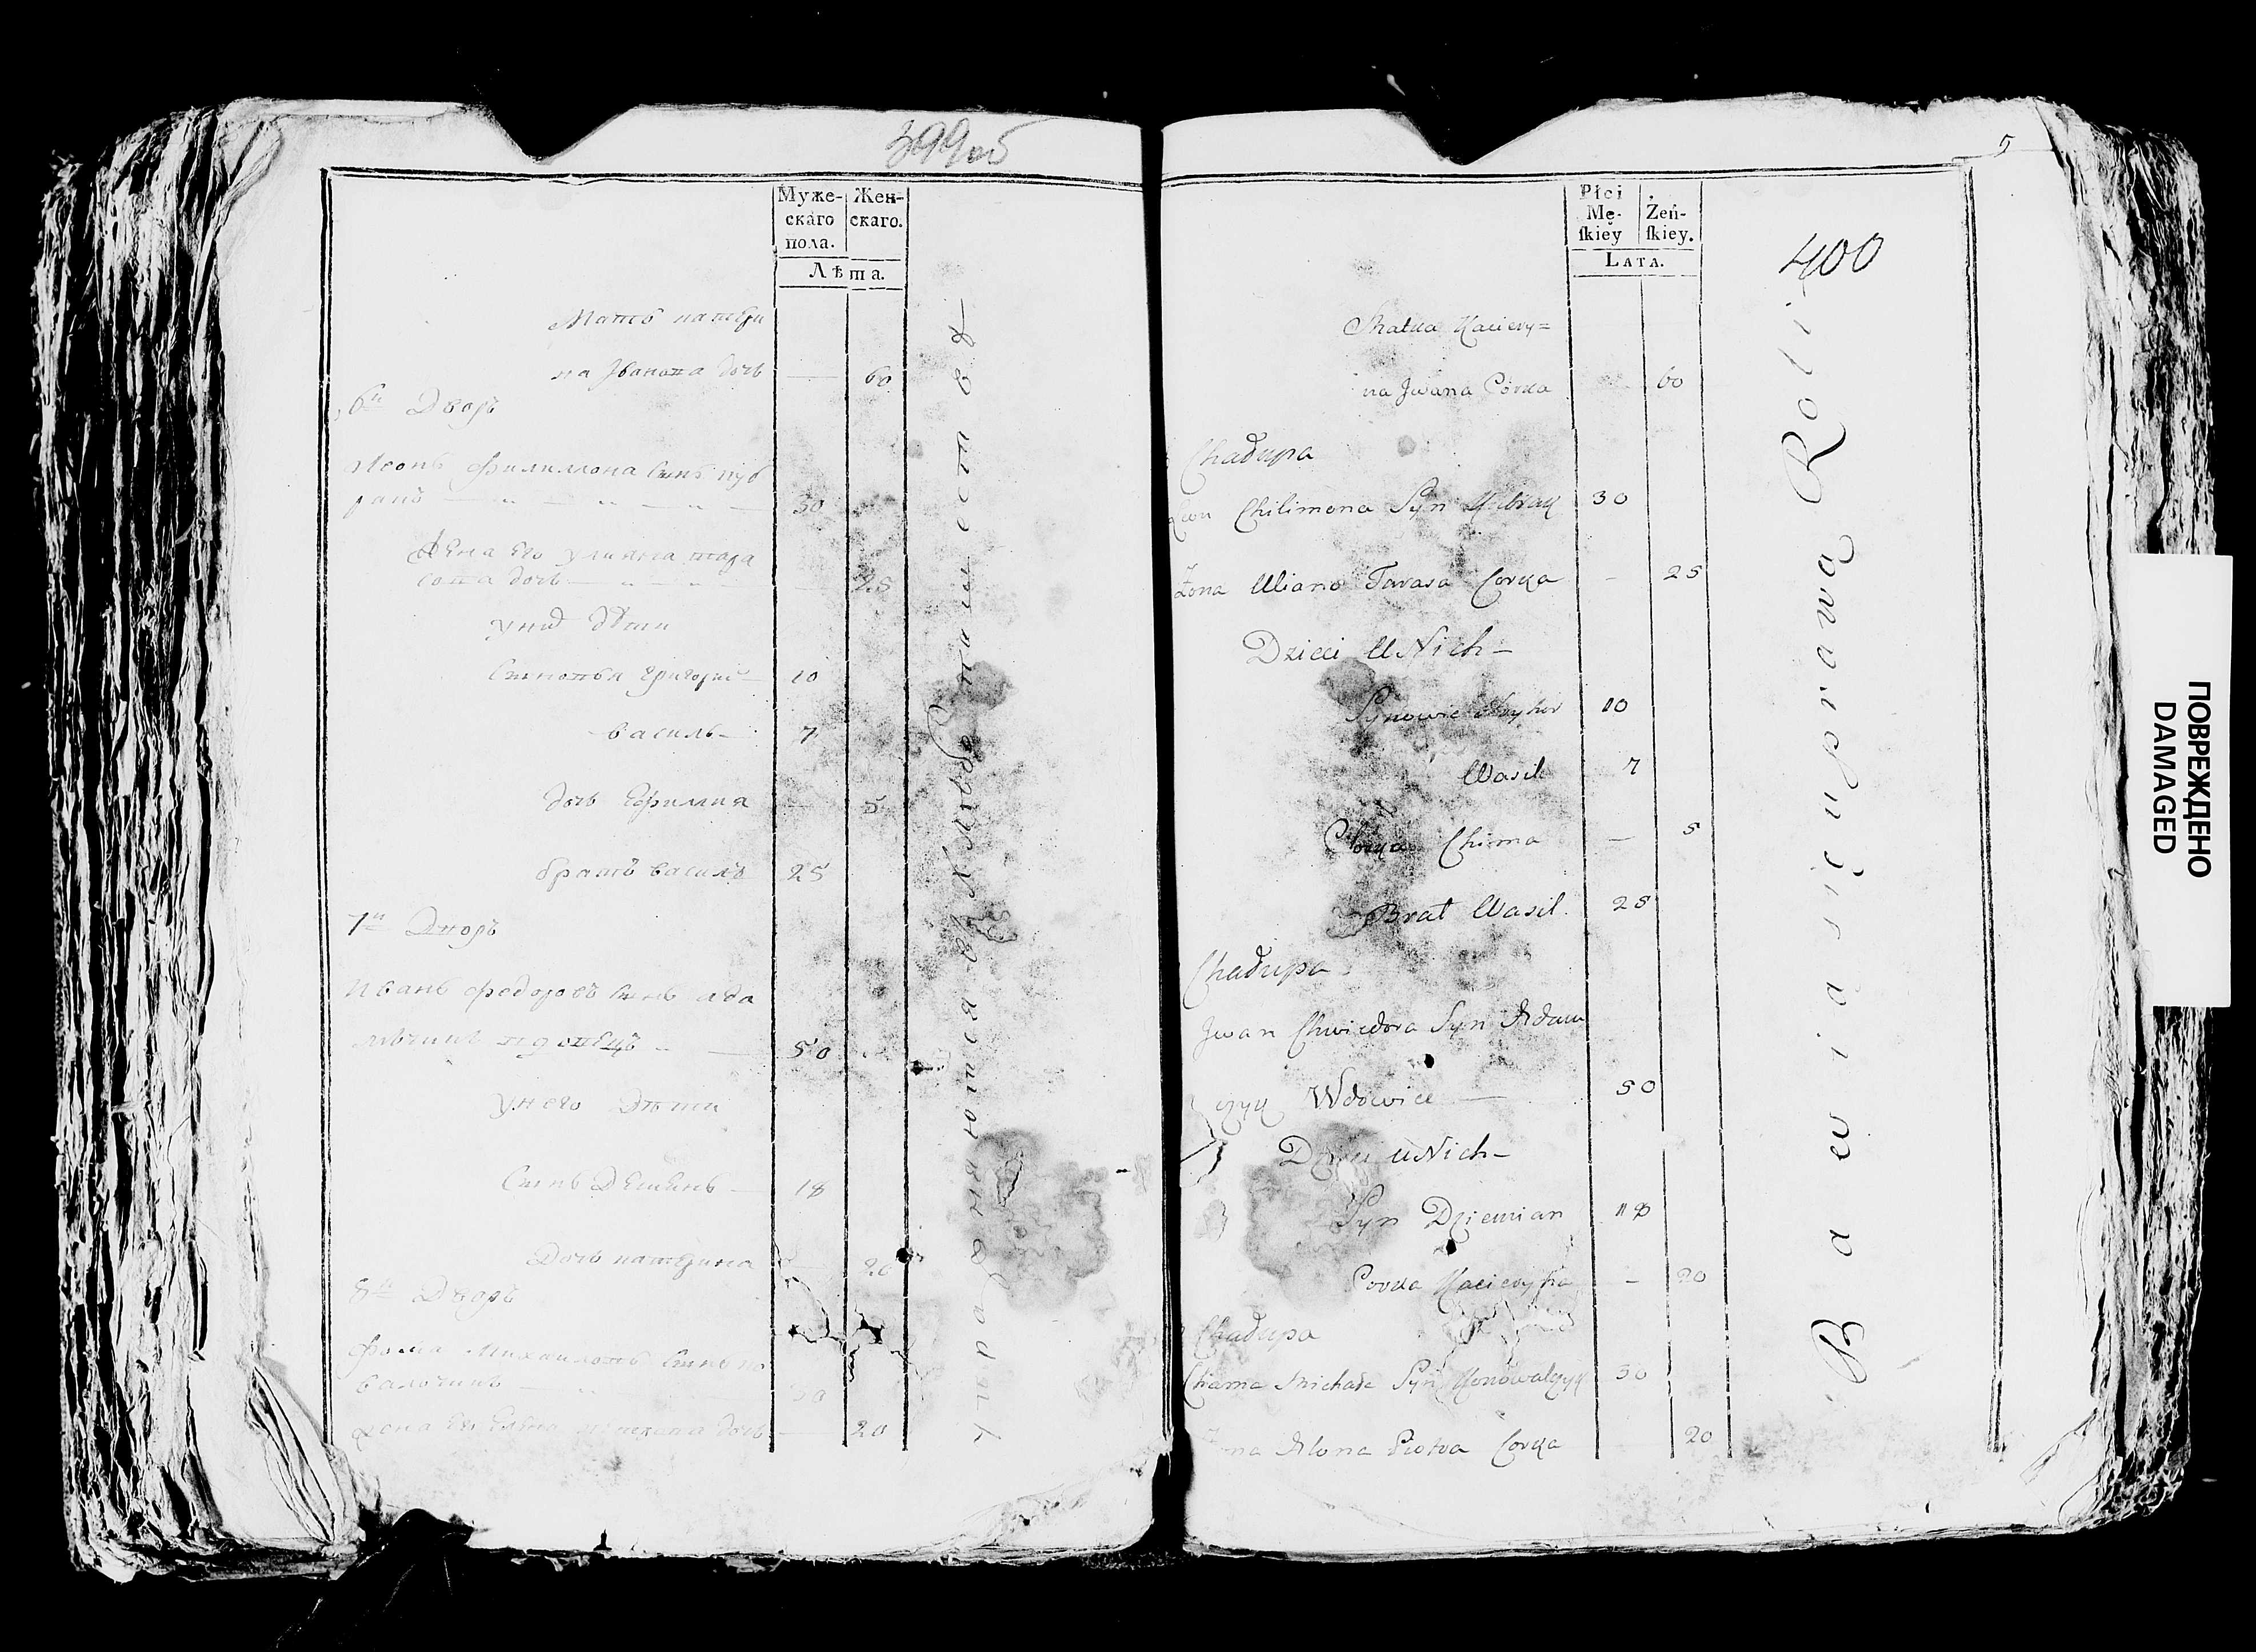 399об
Муже-
скаго
пола.
Жен-
скаго.
Лѣта.
Мать катери
на Іванова дочь — 60
6й Дворъ
Леонъ филимона сынъ куб
ракъ 30
Жена его улияна тара
сова дочь 25
у них дѣти
Сыновья григорий 10
василь 7
дочь Ефимия — 5
братъ василь 25
7й Дворъ
Иванъ федоровъ сынъ ада
мчикъ вдовецъ 50
у него дѣти
Сынъ Демьянъ 18
Дочь катерина 20
8й Дворъ
фома михайловъ сынъ ко
вальчикъ 30
жена его Елена петрова дочь 20
Упражняются в Хлебопашестве
5
400
Płci
Mę-
ſkiey
Żeń-
ſkiey.
LATA.
Matka Kaciery=
na Jwana Córka 60
Chadupa
Leon Chilimona Syn Kubrak 30
Żona Uliana Tarasa Corka – 25
Dzieci U Nich –
Synowie Hryhor 10
Wasil 7
Corka Chima — 5
Brat Wasil 25
Chadupa
Jwan Chwiedora Syn Adam
czyk Wdowiec — 50
Dzieci U Nich –
Syn Dziemian 18
Corka Kacieryna – 20
Chadupa
Chama Michała Syn Konowalczyk 30
Żona Alona Piotra Corka 20
Bawia się uprawą Roli
ПОВРЕЖДЕНО
DAMAGED